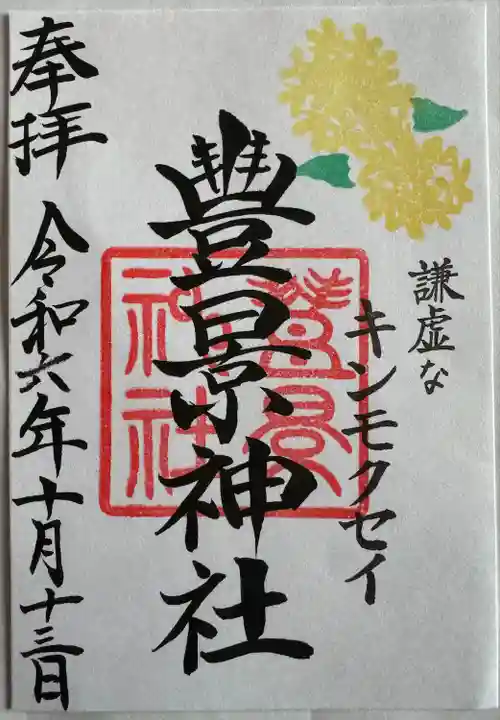 謙虚な
キンモクセイ
豐景神社
豐景
神社
奉拝
令和六年十月十三日